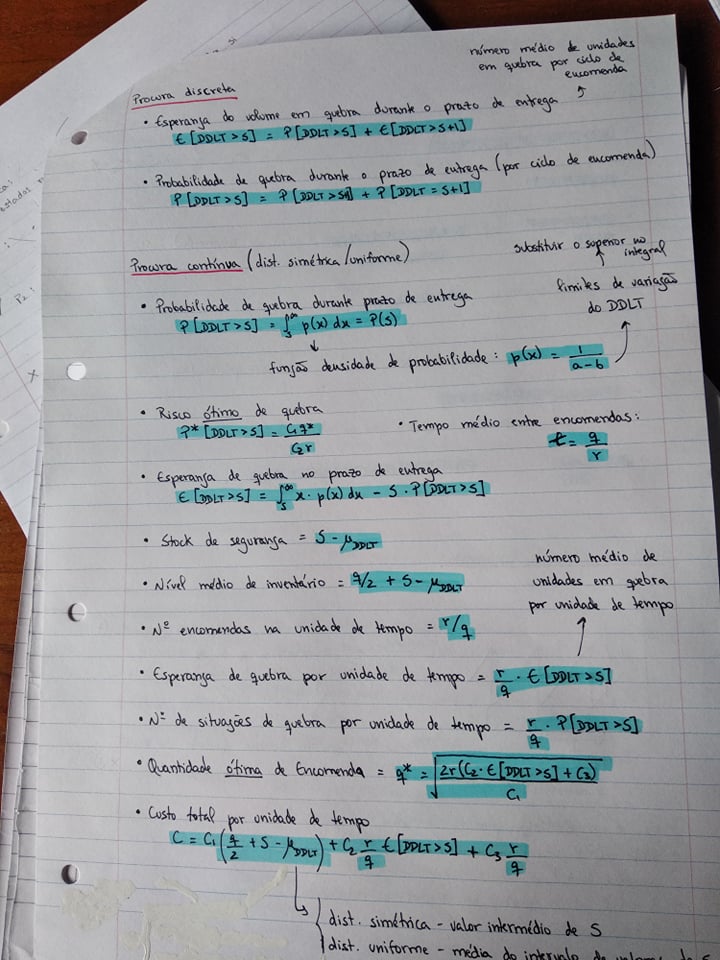 número médio de unidades
em quebra por ciclo de
encomenda
Procura discreta
• Esperança do volume em quebra durante o prazo de entrega
E[DDLT>S] = P[DDLT>S] + E[DDLT>S+1]
• Probabilidade de quebra durante o prazo de entrega (por ciclo de encomenda)
P[DDLT>S] = P[DDLT>S+1] + P[DDLT=S+1]
Procura contínua (dist. simétrica/uniforme)
substituir o superior no
integral
limites de variação
do DDLT
• Probabilidade de quebra durante prazo de entrega
P[DDLT>S] = ∫_S^∞ p(x) dx = P(S)
↓
função densidade de probabilidade: p(x) = 1/(a-b)
• Risco ótimo de quebra
P*[DDLT>S] = C₁q*/C₂r
• Tempo médio entre encomendas:
t = q/r
• Esperança de quebra no prazo de entrega
E[DDLT>S] = ∫_S^∞ x·p(x) dx - S·P[DDLT>S]
• Stock de segurança = S - μ_DDLT
• Nível médio de inventário = q/2 + S - μ_DDLT
• Nº encomendas na unidade de tempo = r/q
número médio de
unidades em quebra
por unidade de tempo
• Esperança de quebra por unidade de tempo = r/q · E[DDLT>S]
• Nº de situações de quebra por unidade de tempo = r/q · P[DDLT>S]
• Quantidade ótima de Encomenda = q* = √(2r(C₂·E[DDLT>S]+C₃)/C₁)
• Custo total por unidade de tempo
C = C₁(q/2 + S - μ_DDLT) + C₂ r/q E[DDLT>S] + C₃ r/q
dist. simétrica - valor intermédio de S
dist. uniforme - média do intervalo de valores de S